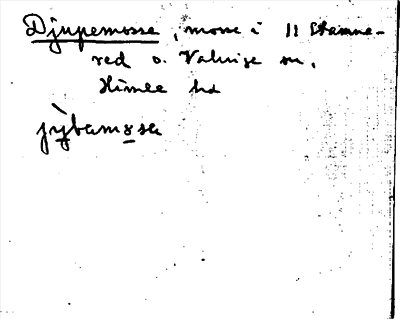 Djupemosse, mosse i 11 Stamna-
red o. Valinge sn,
Himle hd
jỳbamosa